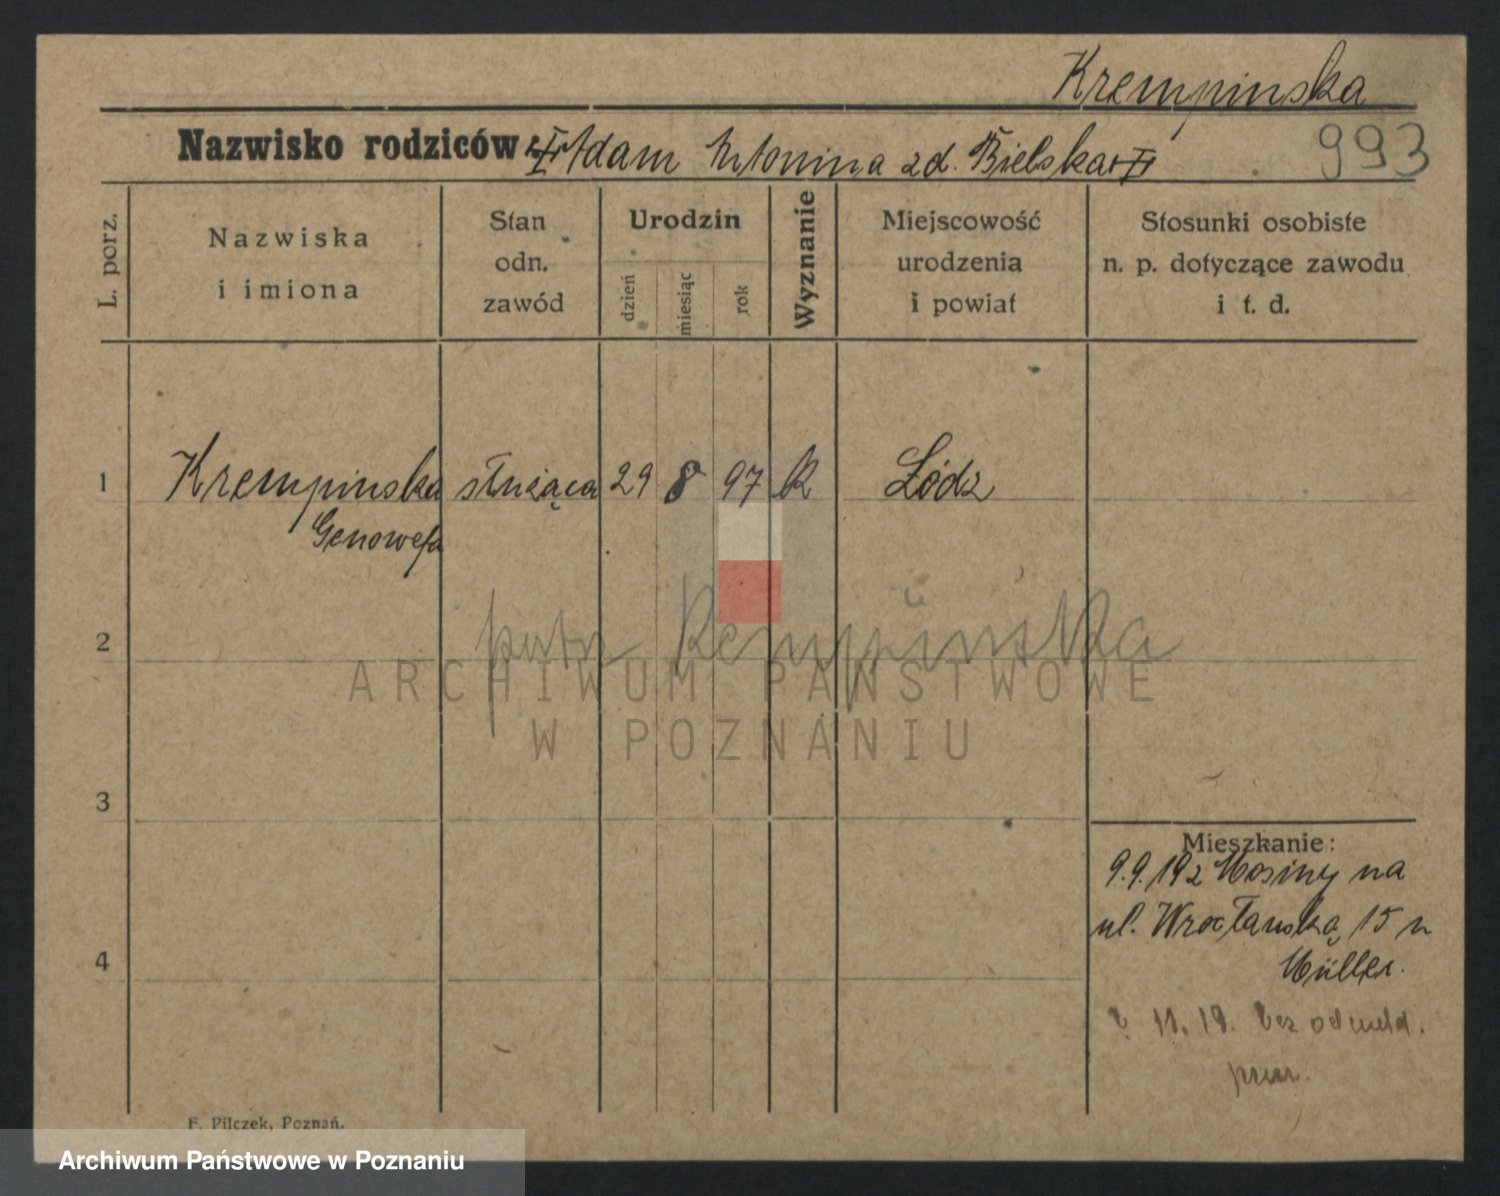 Krempinska
Nazwisko rodziców Adam Antonina zd. Bielska
993
L. porz.
Nazwiska
i imiona
Stan
odn.
zawód
Urodzin
dzień
miesiąc
rok
Wyznanie
Miejscowość
urodzenia
i powiat
Stosunki osobiste
n. p. dotyczące zawodu
i t. d.
1 Krempinska służąca 29 8 97 k Łódz
Genowefa
2
Kempinska
ARCHIWUM PAŃSTWOWE
W POZNANIU
3
Mieszkanie:
9.9.192 Mosiny na
ul. Wrocławską 15 u
Müller.
4
11.19. bez odmeld.
F. Pilczek, Poznań.
Archiwum Państwowe w Poznaniu